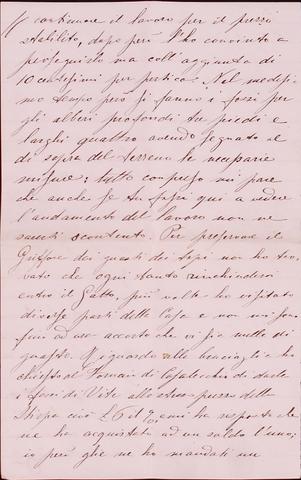 continuare il lavoro per il prezzo
stabilito, dopo però l'ho convinto a
proseguirlo ma coll'aggiunta di
10 centesimi per pertica. Nel medesi-
mo tempo però si fanno i fossi per
gli alberi profondi tre piedi e
larghi quattro avendo segnato al
di sopra del terreno le
misure; tutto compreso mi pare
che anche se tu fossi qui a vedere
l'andamento del lavoro non ne
saresti scontento. Per preservare il
dei guasti dei topi non ho tro-
vato che ogni tanto rinchiudervi
entro il Gatto, più volte ho visitato
diverse parti della Casa e non mi so-
no ad ora accorto che vi sia nulla di
guasto. Riguardo alle ho
chiesto al di Casalecchio di darle
i fossi di Vite allo stesso prezzo della
cioè e mi ha risposto che
ne ha acquistate ad un soldo l'uno,
io però ghe ne ho mandati un